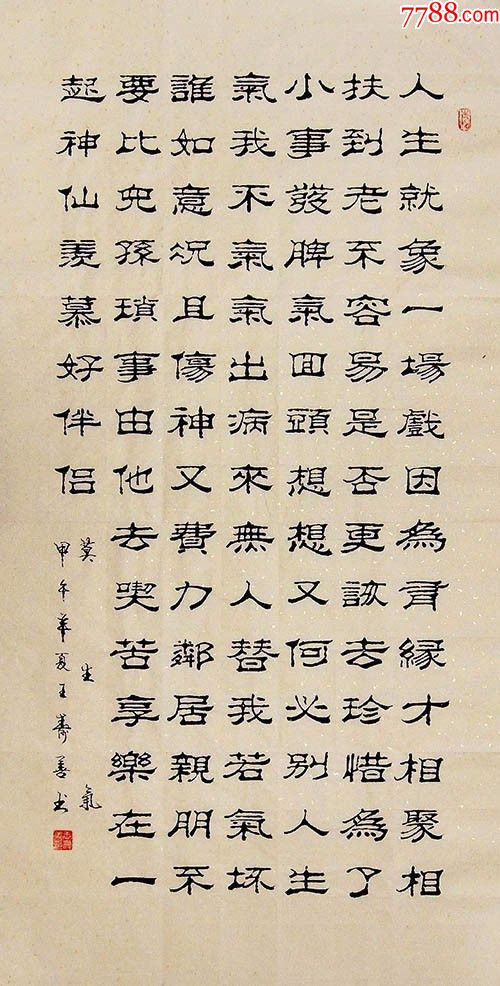 7788.com
人生就象一場戲因為有緣才相聚相
扶到老不容易是否更該去珍惜為了
小事發脾氣回頭想想又何必別人生
氣我不氣氣出病來無人替我若氣坏
誰如意況且傷神又費力鄰居親朋不
要比兒孫瑣事由他去喫苦享樂在一
起神仙羨慕好伴侣
莫生氣
甲午年夏王壽善书